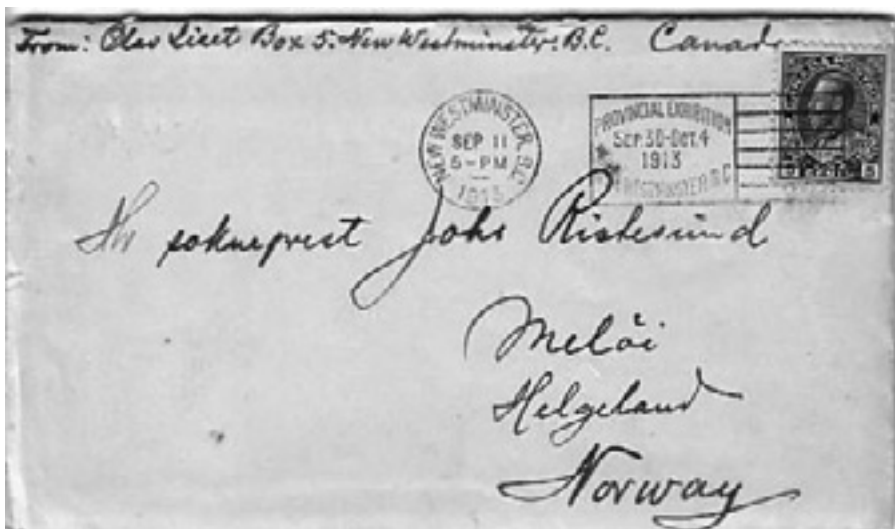 From: Olav Liset Box 5. New Westminster. B.C. Canada
NEW WESTMINSTER, B.C.
SEP 11
5-PM
1913
PROVINCIAL EXHIBITION
SEP. 30-OCT. 4
1913
WESTMINSTER B.C
Hr sokneprest Johs Ristesund
Melöi
Helgeland
Norway